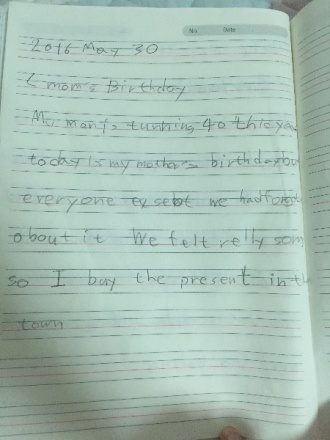 No. Date
2016 May 30
< mom's Birthday
My mom is turning 40 this yea
today is my mother's birthday bu
everyone exsebt me had forgo
about it We felt relly sorr
so I buy the present in th
town